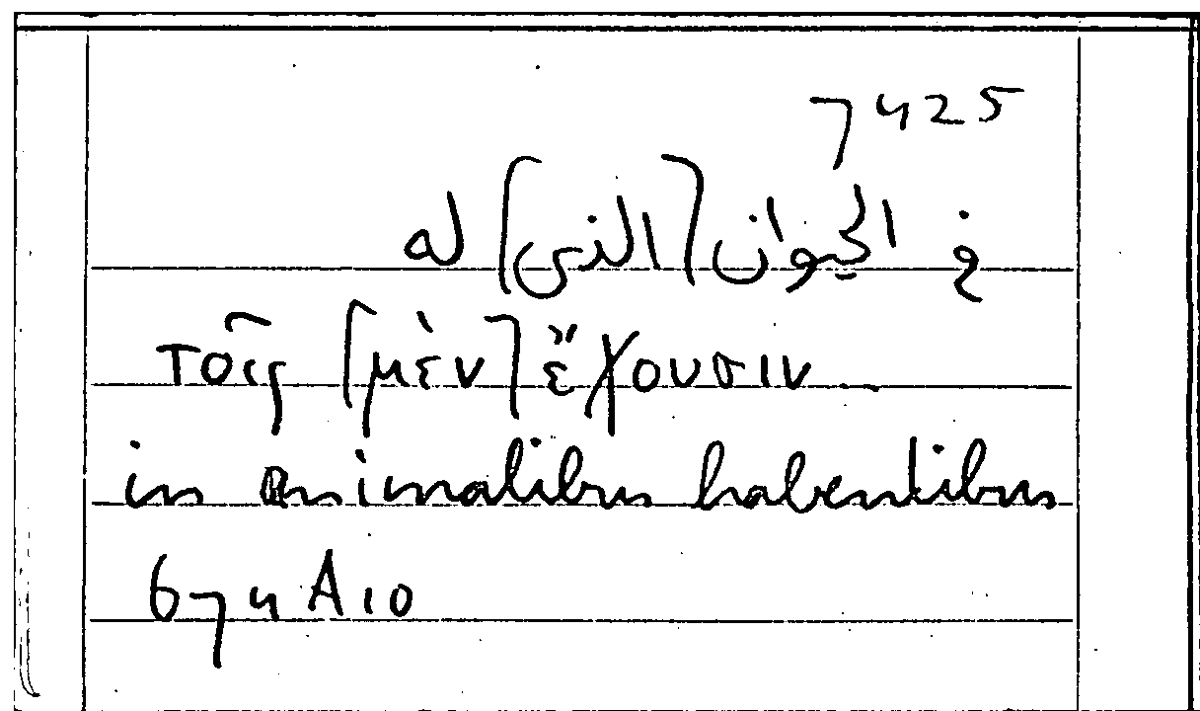 7425
في الحيوان [الذي] له
τοῖς [μὲν] ἔχουσιν
in animalibus habentibus
674A10